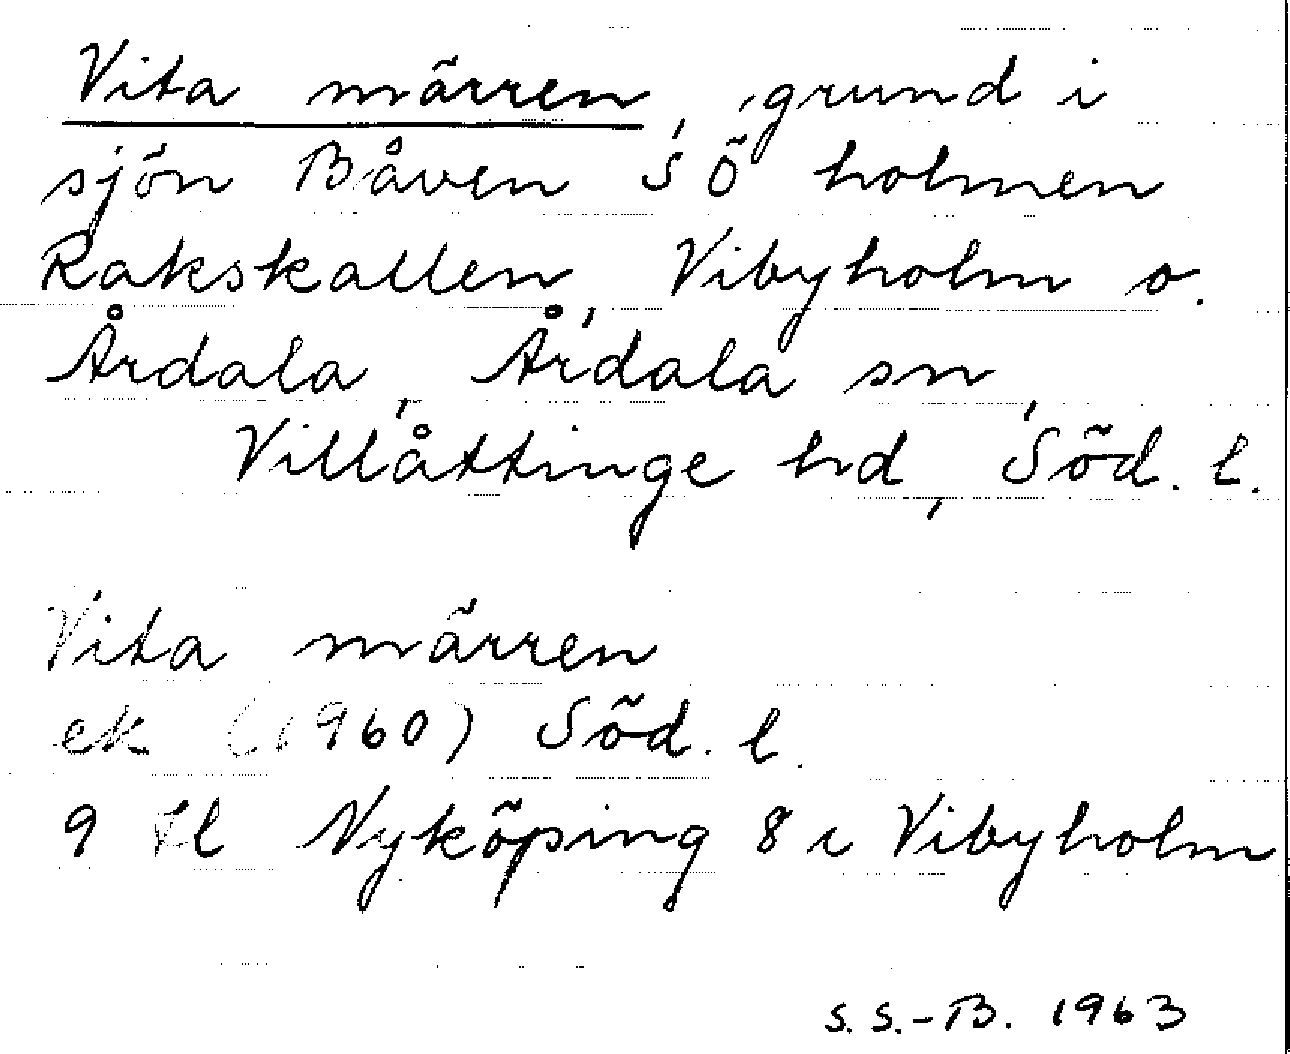 Vita märren, grund i
sjön Båven SÖ holmen
Rakskallen, Vibyholm o.
Årdala, Årdala sn,
Villåttinge hd, Söd. l.
Vita märren
ek (1960) Söd. l.
9 Nyköping 8 i Vibyholm
S. S.-B. 1963